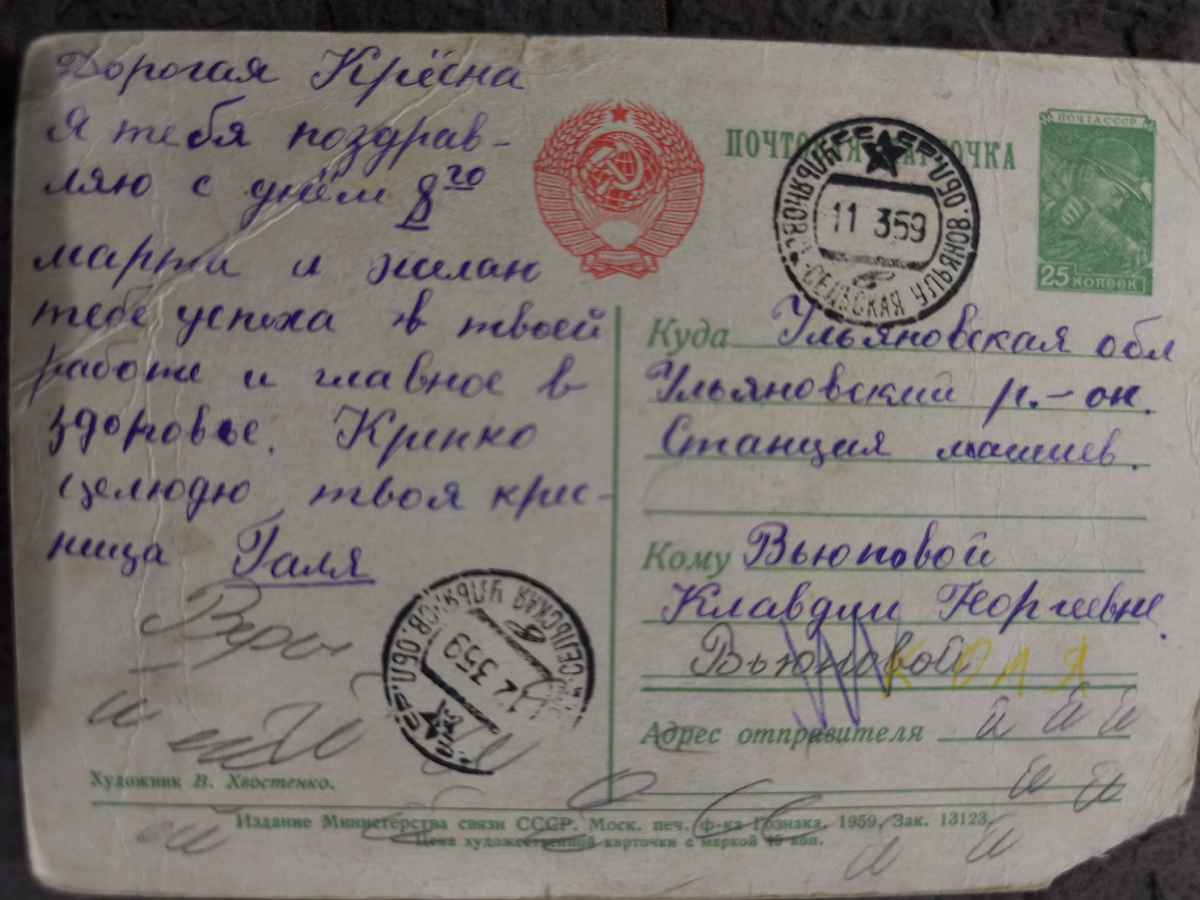 Дорогая Крёсна
Я тебя поздрав-
ляю с днём 8го
марта и желаю
тебе успеха в твоей
работе и главное в
здоровье. Крепко
целюдю твоя крес-
ница Галя
ПОЧТОВАЯ КАРТОЧКА
11 3 59
СЕЛЬСКАЯ УЛЬЯНОВ. ОБЛ.
ПОЧТА СССР
25 КОПЕЕК
Куда Ульяновская обл
Ульяновский р.-он.
Станция
Кому Вьюновой
Клавдии Георгевне.
Вьюновой
КОЛЯ
Адрес отправителя
й й й
й й
СЕЛЬСКАЯ УЛЬЯНОВ. ОБЛ.
3 59
Художник В. Хвостенко.
Издание Министерства связи СССР. Моск. печ. ф-ка Гознака. 1959, Зак. 13123.
Цена художественной карточки с маркой 40 коп.